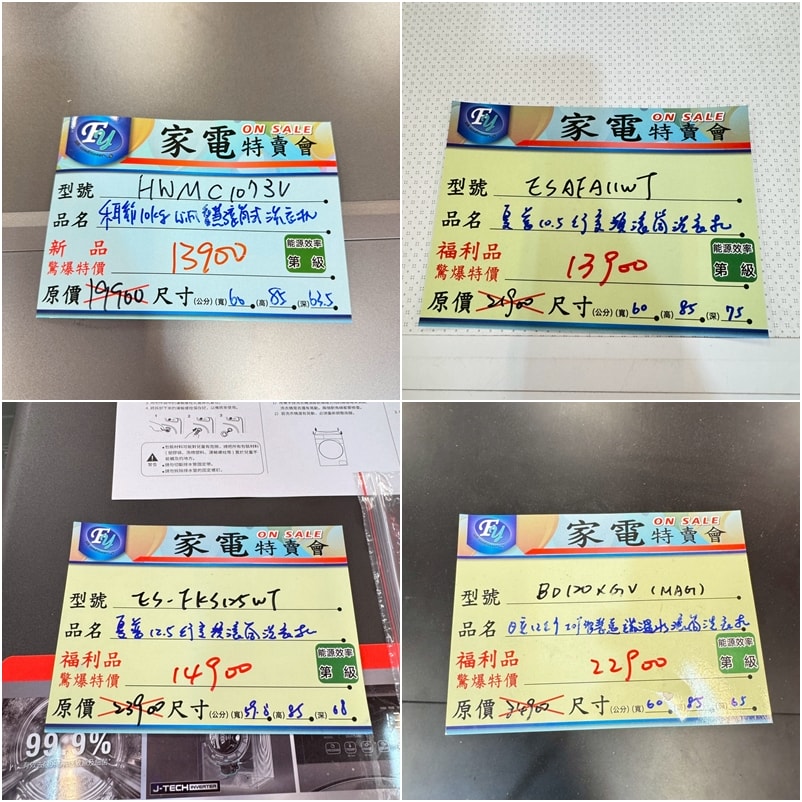 Fy 家電特賣會 ON SALE
型號 HWMC1073V
品名 禾聯10kg 滾筒式洗衣机
新品
驚爆特價 13900
能源效率
第 級
原價 19900 尺寸(公分)(寬)60 (高)85 (深)63.5
Fy 家電特賣會 ON SALE
型號 ESAFA11WT
品名 夏普10.5公斤变頻滾筒洗衣机
福利品
驚爆特價 13900
能源效率
第 級
原價 21900 尺寸(公分)(寬)60 (高)85 (深)75
警告
Fy 家電特賣會 ON SALE
型號 ES-FKS125WT
品名 夏普12.5公斤变頻滾筒洗衣机
福利品
驚爆特價 14900
能源效率
第 級
原價 23900 尺寸(公分)(寬)59.8 (高)85 (深)68
99.9%
J-TECH INVERTER
Fy 家電特賣會 ON SALE
型號 BD120XGV (MAG)
品名 日立12公斤 溫水滾筒洗衣机
福利品
驚爆特價 22900
能源效率
第 級
原價 34900 尺寸(公分)(寬)60 (高)85 (深)65